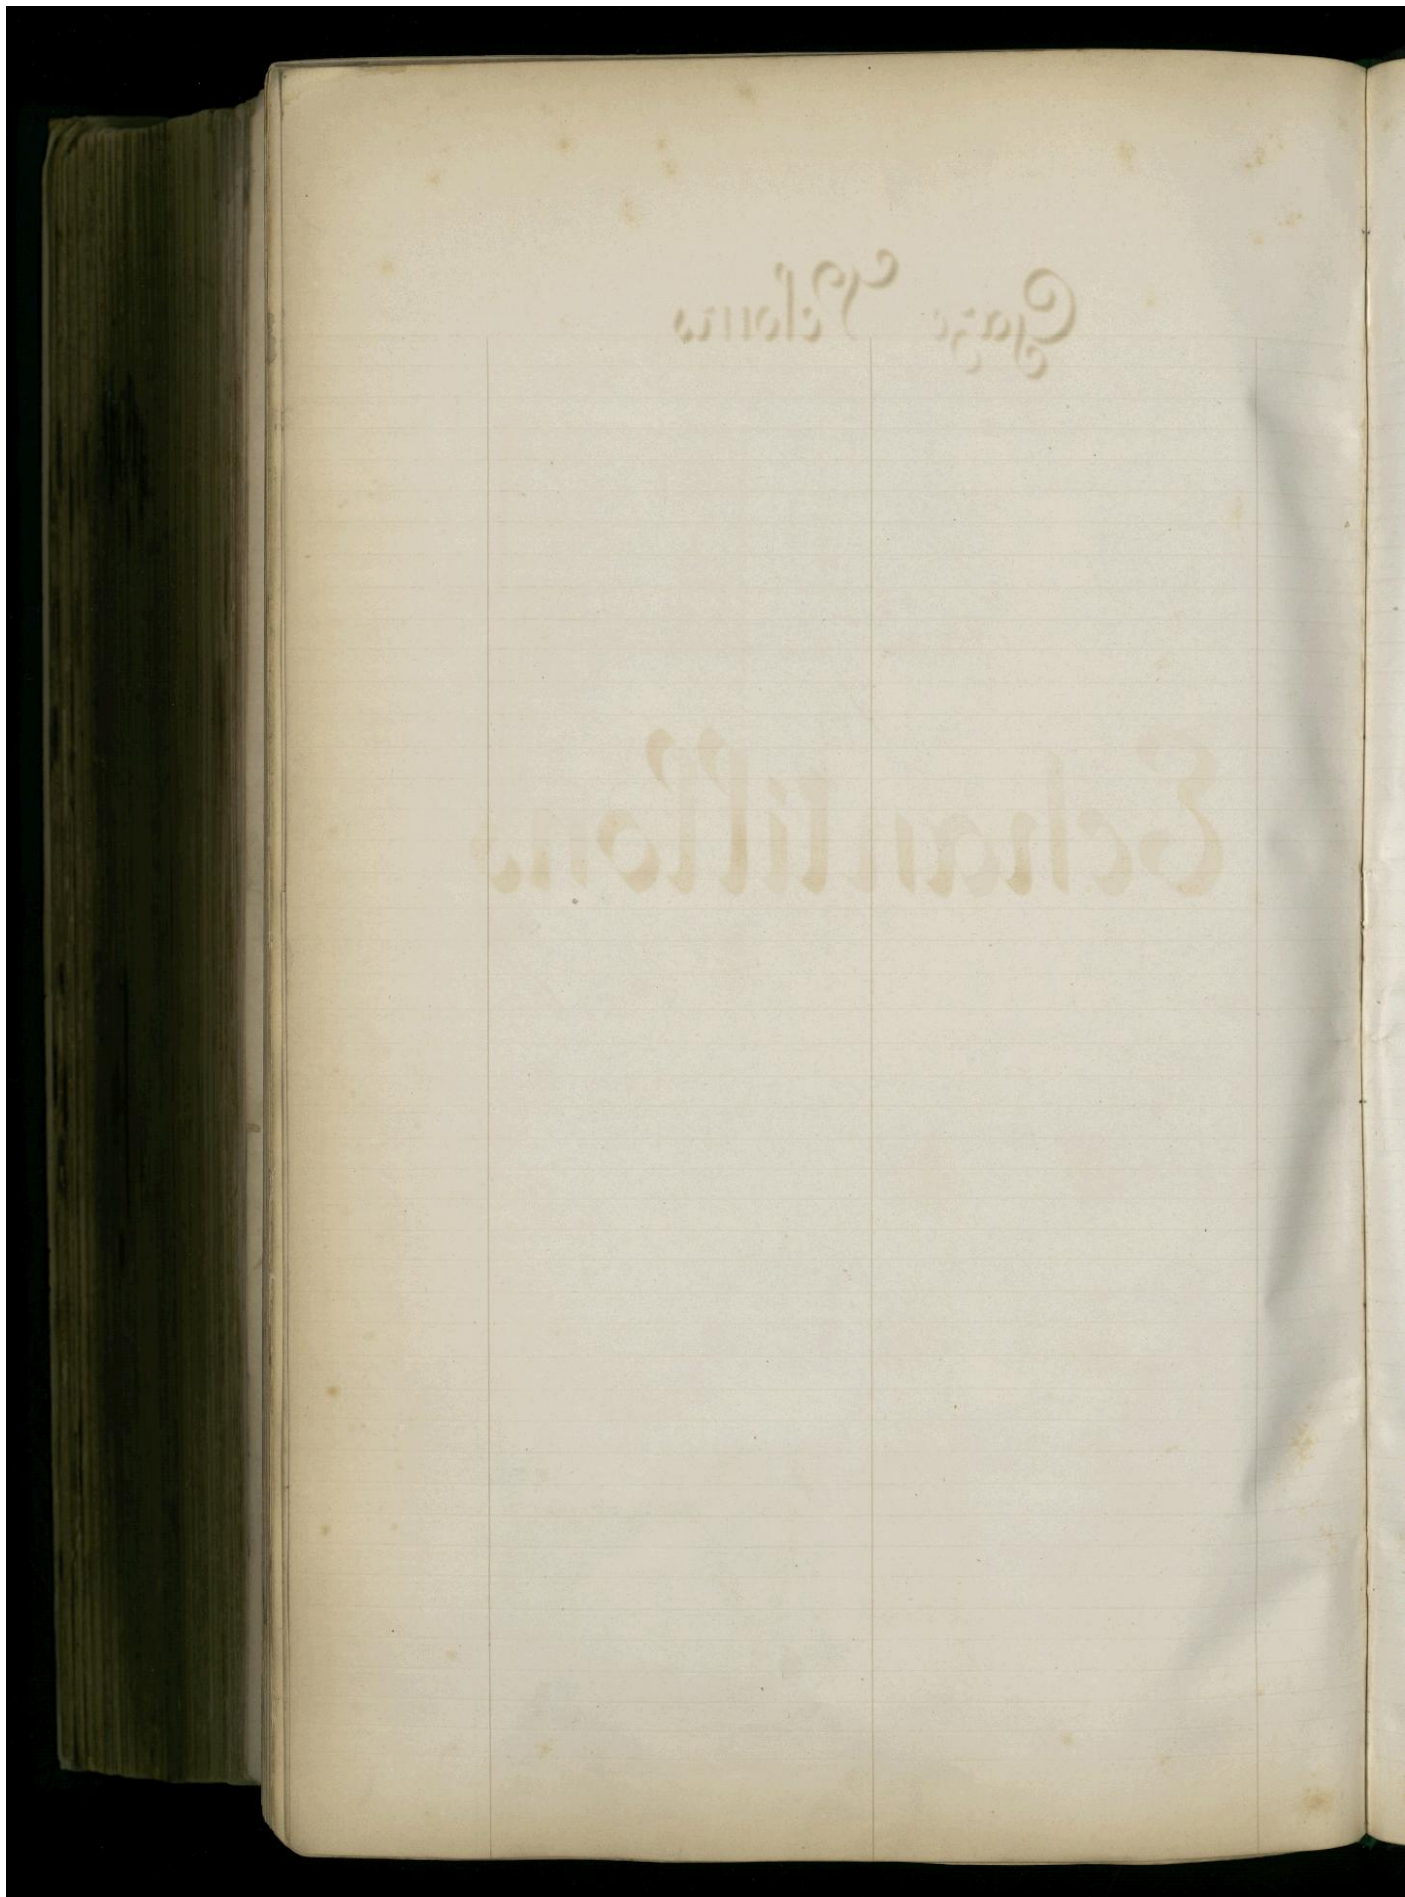 Gaze Velours
Echantillons